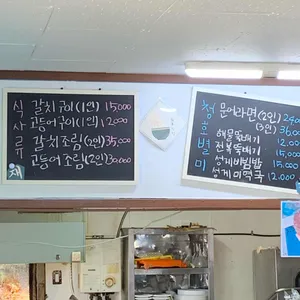 식사류
갈치구이(1인) 15,000
고등어구이(1인) 12,000
갈치조림(2인) 35,000
고등어조림(2인) 30,000
청호별미
문어라면(2인) 24,0
(3인) 36,0
해물뚝배기 12,00
전복뚝배기 15,00
성게비빔밥 15,000
성게미역국 12,000